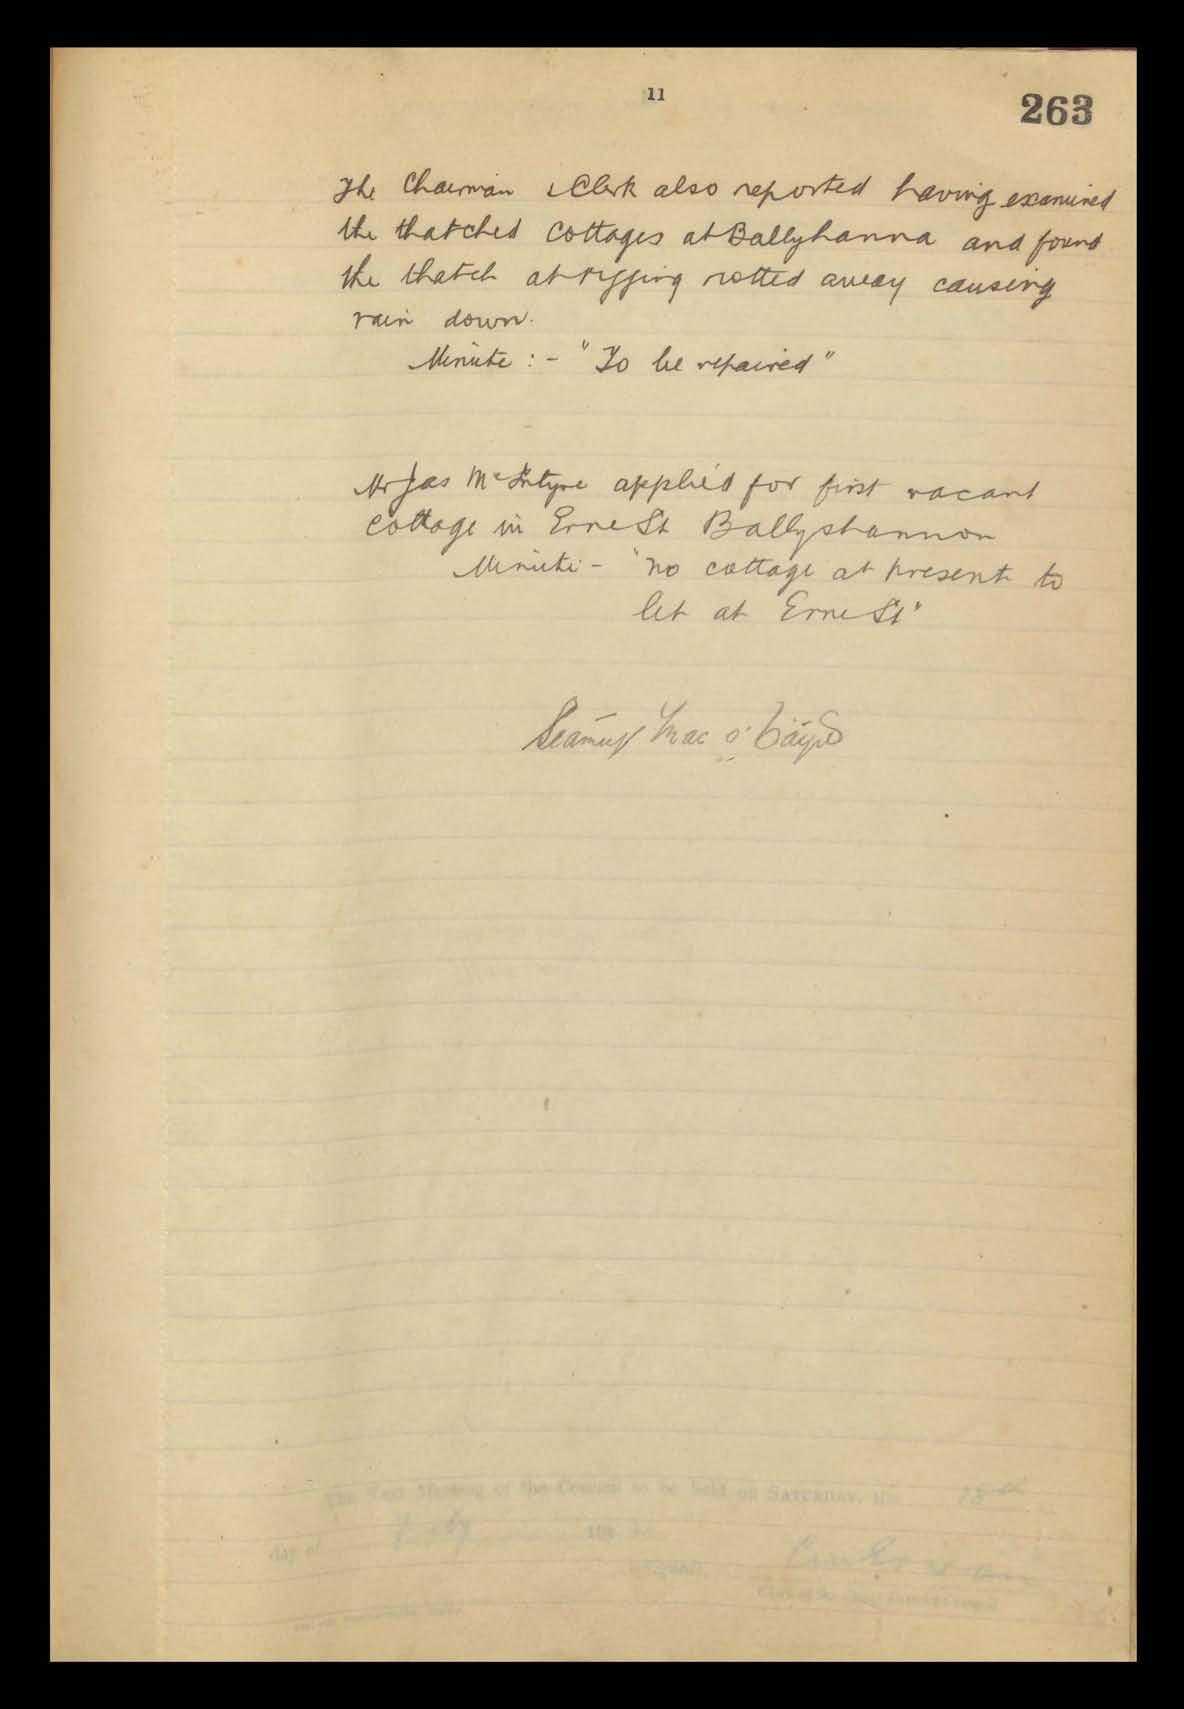 11
263
The Chairman & Clerk also reported having examined
the thatched cottages at Ballyhanna and found
the thatch at rigging rotted away causing
rain down.
Minute :- "To be repaired"
Mr Jas McIntyre applied for first vacant
cottage in Erne St Ballyshannon
Minute - "no cottage at present to
let at Erne St"
Seamus Mac
The Next Meeting of the Council to be held on SATURDAY, the
day of